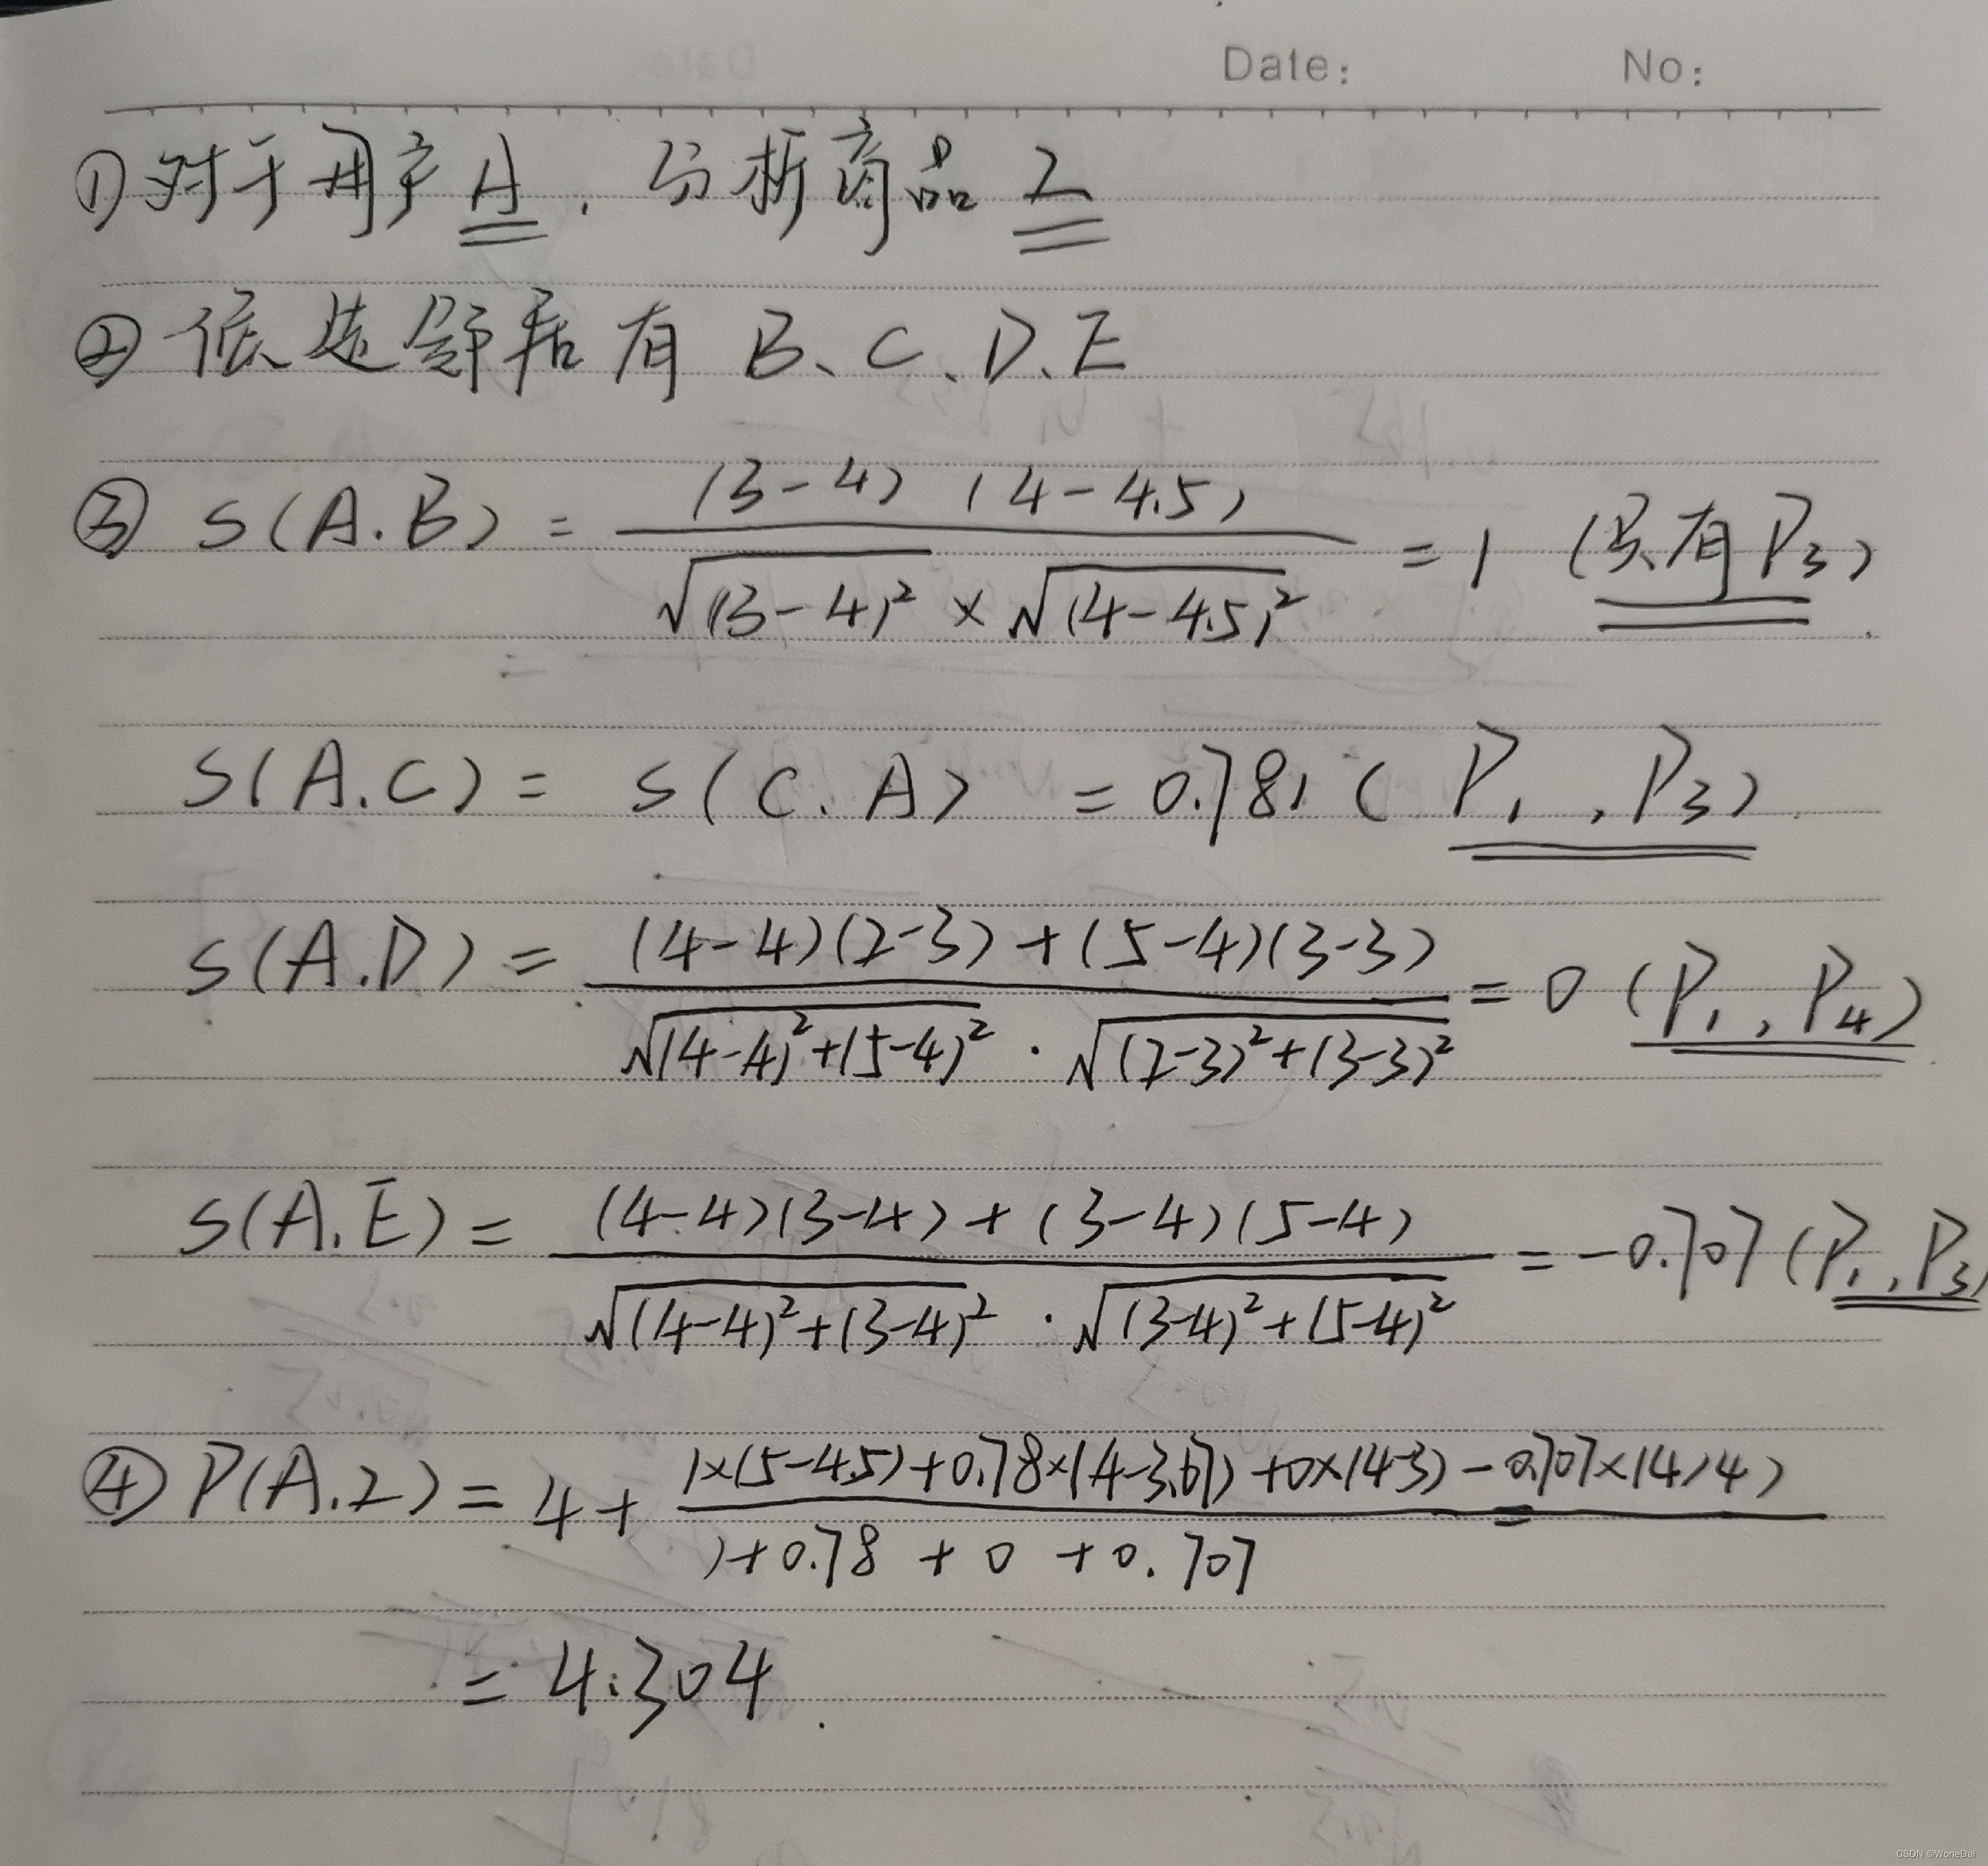 Date: No:
①对于用户A，分析商品2
②候选邻居有 B、C、D、E
③ S(A.B) = (3-4) (4-4.5) / √(3-4)² × √(4-4.5)² = 1 (只有P₃)
S(A.C) = S(C.A) = 0.781 (P₁,P₃)
S(A.D) = (4-4)(2-3)+(5-4)(3-3) / √(4-4)²+(5-4)² · √(2-3)²+(3-3)² = 0 (P₁,P₄)
S(A.E) = (4-4)(3-4)+(3-4)(5-4) / √(4-4)²+(3-4)² · √(3-4)²+(5-4)² = -0.707 (P₁,P₃)
④ P(A.2) = 4 + 1×(5-4.5)+0.78×(4-3.67)+0×(4-3)-0.707×(4-4) / 1+0.78+0+0.707
= 4.304
CSDN @WoneDai